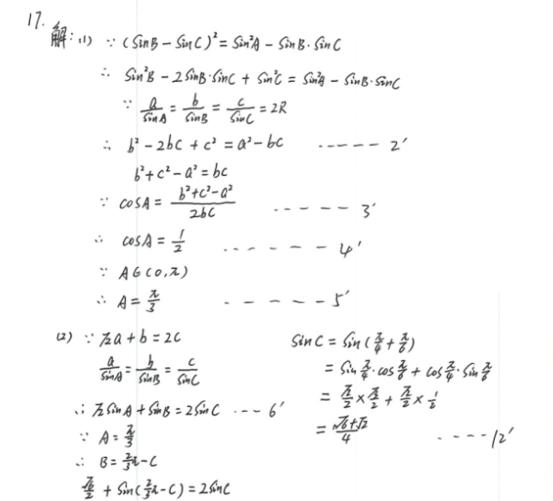 17.
解:(1) ∵ (sinB - sinC)² = sin²A - sinB·sinC
∴ sin²B - 2sinB·sinC + sin²C = sin²A - sinB·sinC
∵ a/sinA = b/sinB = c/sinC = 2R
∴ b² - 2bc + c² = a² - bc ----- 2'
b² + c² - a² = bc
∵ cosA = (b² + c² - a²)/2bc ----- 3'
∴ cosA = 1/2 ------ 4'
∵ A∈(0,π)
∴ A = π/3 ----- 5'
(2) ∵ √2a + b = 2c
a/sinA = b/sinB = c/sinC
∴ √2sinA + sinB = 2sinC --- 6'
∵ A = π/3
∴ B = 2/3π - C
√6/2 + sin(2/3π - C) = 2sinC
sinC = sin(π/4 + π/6)
= sin π/4·cos π/6 + cos π/4·sin π/6
= √2/2 × √3/2 + √2/2 × 1/2
= (√6+√2)/4 ---- 12'